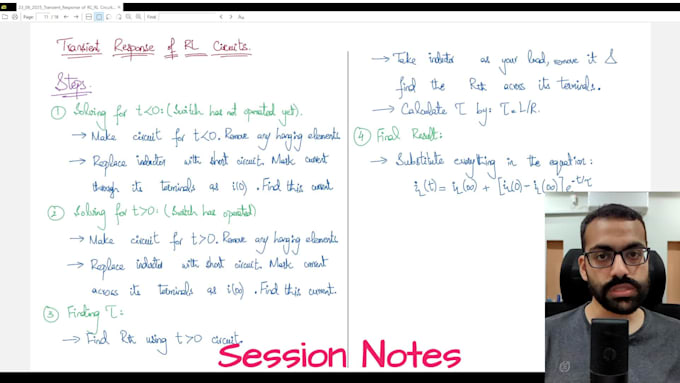 23_08_2023_Transient Response of RL_RL Circuit...
Page: 11 / 18
Find:
Transient Response of RL Circuits.
Steps.
① Solving for t<0: (Switch has not operated yet).
→ Make circuit for t<0. Remove any hanging elements
→ Replace inductor with short circuit. Mark current
through its terminals as i(0). Find this current
② Solving for t>0: (Switch has operated)
→ Make circuit for t>0. Remove any hanging elements
→ Replace inductor with short circuit. Mark current
across its terminals as i(∞). Find this current.
③ Finding τ:
→ Find Rth using t>0 circuit.
→ Take inductor as your load, remove it &
find the Rth across its terminals.
→ Calculate τ by: τ = L/R.
④ Final Result:
→ Substitute everything in the equation:
iL(t) = iL(∞) + [iL(0) - iL(∞)] e^-t/τ
Session Notes